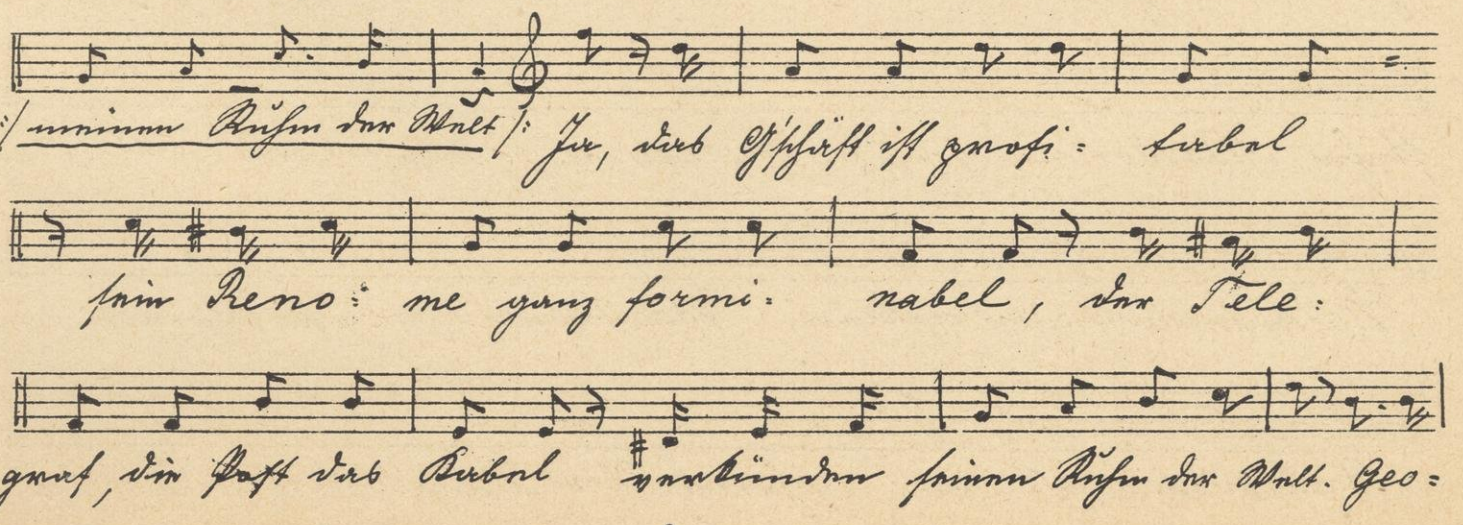 :/ meinen Ruhm der Welt /: Ja, das G'schäft ist profi= tabel
sein Reno= me ganz formi= nabel, der Tele=
graf, die Post das Kabel verkünden seinen Ruhm der Welt. Geo=